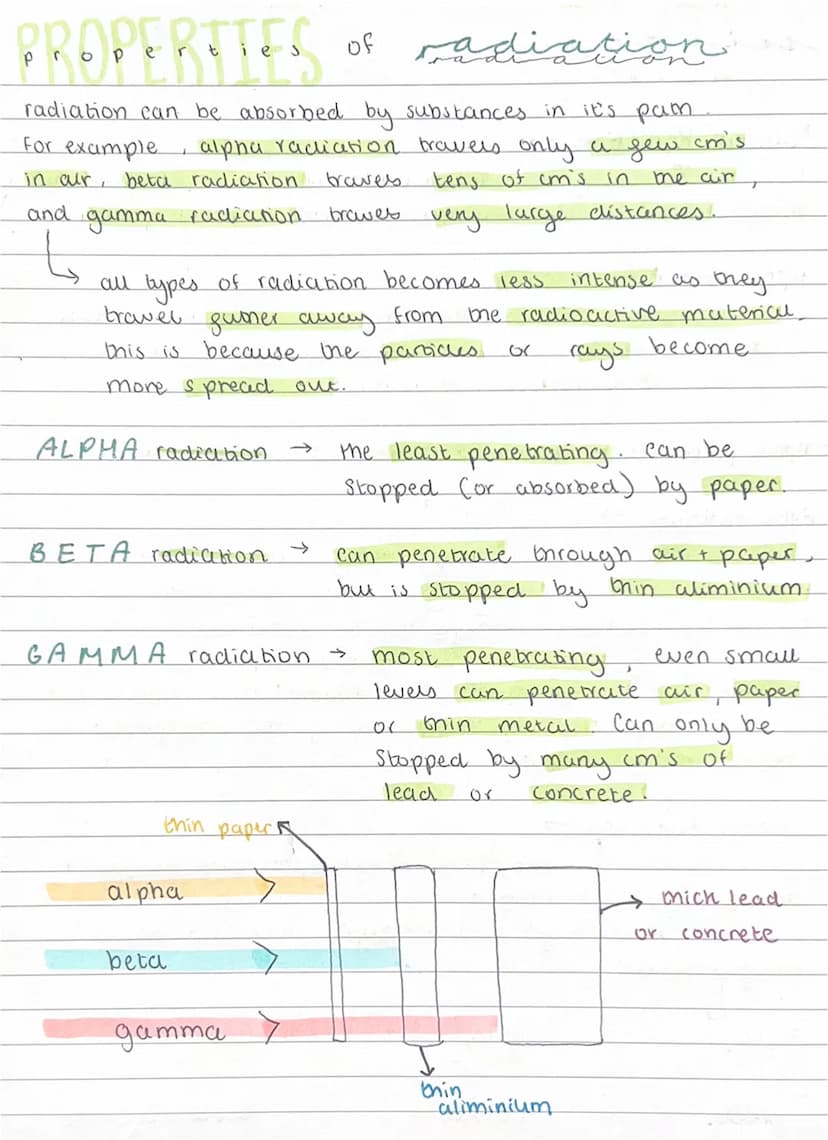 properties of radiation
radiation can be absorbed by substances in it's path.
For example, alpha radiation travels only a few cm's
in air, beta radiation travels tens of cm's in the air,
and gamma radiation travels very large distances.
all types of radiation becomes less intense as they
travel further away from the radioactive material.
this is because the particles or rays become
more spread out.
ALPHA radiation → the least penetrating. can be
stopped (or absorbed) by paper.
BETA radiation → can penetrate through air + paper,
but is stopped by thin aliminium
GAMMA radiation → most penetrating, even small
levels can penetrate air, paper
or thin metal. Can only be
stopped by many cm's of
lead or concrete.
thin paper
alpha
thick lead
or concrete
beta
gamma
thin
aliminium